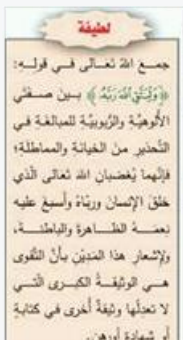 لطيفة
جمع الله تعالى في قوله:
﴿وَلْيَتَّقِ اللَّهَ رَبَّهُ﴾ بين صفتي
الألوهيَّة والرُّبوبيَّة للمبالغة في
التَّحذير من الخيانة والمماطلة؛
فإنَّهما يُغضبان الله تعالى الَّذي
خلق الإنسان وربَّاهُ وأسبغ عليه
نعمهُ الظَّاهرة والباطنة،
ولإشعار هذا المَدِين بأنَّ التَّقوى
هي الوثيقةُ الكبرى الَّتي
لا تعدِلُها وثيقةٌ أُخرى في كتابةٍ
أو شهادةٍ أو رهن.